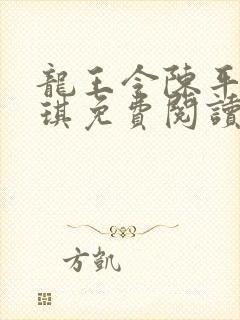 龍王令陳平
琪免費閱讀
方凱